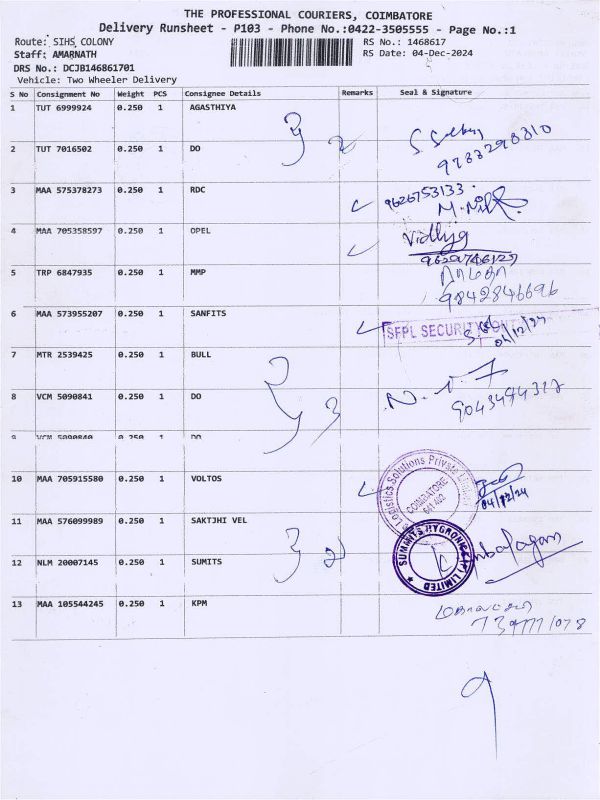 THE PROFESSIONAL COURIERS, COIMBATORE
Delivery Runsheet - P103 - Phone No.:0422-3505555 - Page No.:1
Route: SIHS COLONY
RS No.: 1468617
Staff: AMARNATH
RS Date: 04-Dec-2024
DRS No.: DCJB146861701
Vehicle: Two Wheeler Delivery
S No Consignment No Weight PCS Consignee Details Remarks Seal & Signature
1 TUT 6999924 0.250 1 AGASTHIYA
2 TUT 7016502 0.250 1 DO
3 MAA 575378273 0.250 1 RDC 9626753133
4 MAA 705358597 0.250 1 OPEL Vidhya
5 TRP 6847935 0.250 1 MMP
9842846696
6 MAA 573955207 0.250 1 SANFITS SFPL SECURITY
04/12/24
7 MTR 2539425 0.250 1 BULL
8 VCM 5090841 0.250 1 DO
9 VCM 5090840 0.250 1 DO
10 MAA 705915580 0.250 1 VOLTOS
Logistics Solutions Private Limited
COIMBATORE
641 402
04/12/24
11 MAA 576099989 0.250 1 SAKTJHI VEL
12 NLM 20007145 0.250 1 SUMITS
SUMMITS HYGRONICS (P) LIMITED
13 MAA 105544245 0.250 1 KPM
9